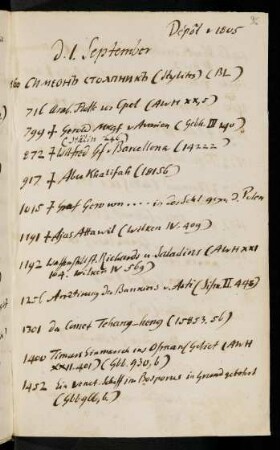 Dépôt v 1805
d. 1. September
460 Симеонъ столпникъ (Stylites) (BL)
716 Arab. Flotte vor Cpel (AWH XX,5)
799 † Gerold Mkgf v Avarien (Gbh. III 240)
(Stälin 246)
872 † Wilfred Gf. Barcellona (14222)
917 † Abu Khalifah (18156)
1015 † Graf Gerown .... in der Schl. gegen d. Polen
1191 † Ajas Attawil (Wilken IV. 409)
1192 Waffenstillst. Richards u Saladins (AWH XXI
164. Wilken IV 569)
1256 in Asti (Sism. III 448)
1301 da Comet Tchang-heng (15853. 56)
1400 Timurs Einmarsch ins Osman. Gebiet (AWH
XXII. 401) (Gbb. 930, b)
1452 Ein venet. Schiff im Bosporus in Grund gebohrt
(Gbb 966, b.)